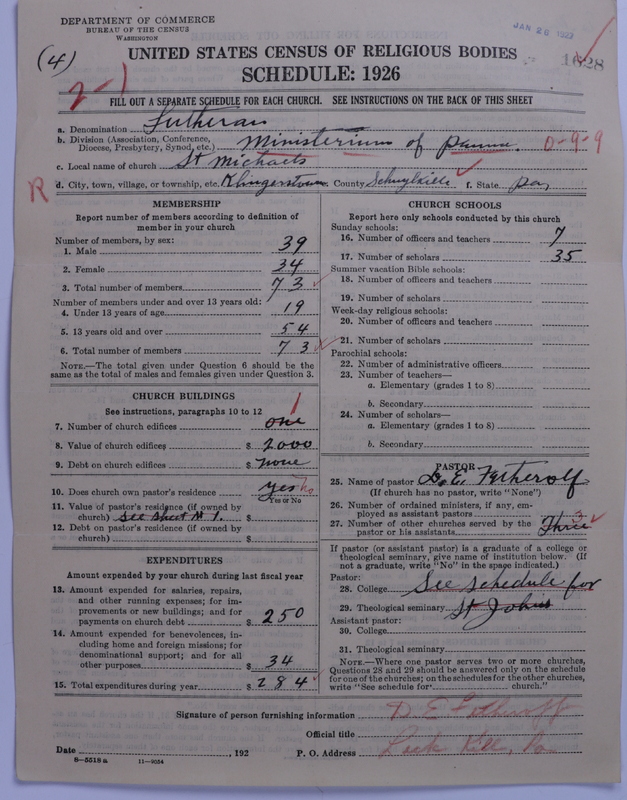 DEPARTMENT OF COMMERCE
BUREAU OF THE CENSUS
WASHINGTON
JAN 26 1927
(4)
1628
UNITED STATES CENSUS OF RELIGIOUS BODIES
SCHEDULE: 1926
2-1
FILL OUT A SEPARATE SCHEDULE FOR EACH CHURCH. SEE INSTRUCTIONS ON THE BACK OF THIS SHEET
a. Denomination Lutheran
b. Division (Association, Conference, Diocese, Presbytery, Synod, etc.) Ministerium of Penna. 0-9-9
c. Local name of church St Michaels
R
d. City, town, village, or township, etc. Klingerstown County Schuylkill f. State Pa,
MEMBERSHIP
Report number of members according to definition of member in your church
Number of members, by sex:
1. Male 39
2. Female 34
3. Total number of members 73
Number of members under and over 13 years old:
4. Under 13 years of age 19
5. 13 years old and over 54
6. Total number of members 73
NOTE.—The total given under Question 6 should be the same as the total of males and females given under Question 3.
CHURCH BUILDINGS
See instructions, paragraphs 10 to 12
7. Number of church edifices one 1
8. Value of church edifices $ 2000
9. Debt on church edifices $ none
10. Does church own pastor's residence Yes no
Yes or No
11. Value of pastor's residence (if owned by church) See Sheet N 1. $
12. Debt on pastor's residence (if owned by church) $
EXPENDITURES
Amount expended by your church during last fiscal year
13. Amount expended for salaries, repairs, and other running expenses; for improvements or new buildings; and for payments on church debt $ 250
14. Amount expended for benevolences, including home and foreign missions; for denominational support; and for all other purposes $ 34
15. Total expenditures during year $ 284
CHURCH SCHOOLS
Report here only schools conducted by this church
Sunday schools:
16. Number of officers and teachers 7
17. Number of scholars 35
Summer vacation Bible schools:
18. Number of officers and teachers
19. Number of scholars
Week-day religious schools:
20. Number of officers and teachers
21. Number of scholars
Parochial schools:
22. Number of administrative officers
23. Number of teachers—
a. Elementary (grades 1 to 8)
b. Secondary
24. Number of scholars—
a. Elementary (grades 1 to 8)
b. Secondary
PASTOR
25. Name of pastor D. E. Fetherolf
(If church has no pastor, write "None")
26. Number of ordained ministers, if any, employed as assistant pastors
27. Number of other churches served by the pastor or his assistants Three 3
If pastor (or assistant pastor) is a graduate of a college or theological seminary, give name of institution below. (If not a graduate, write "No" in the space indicated.)
Pastor:
28. College See schedule for
29. Theological seminary St Johns
Assistant pastor:
30. College
31. Theological seminary
NOTE.—Where one pastor serves two or more churches, Questions 28 and 29 should be answered only on the schedule for one of the churches; on the schedules for the other churches, write "See schedule for church."
Signature of person furnishing information D. E. Fetherolf
Official title
Date , 192 P. O. Address Lock Kill, Pa
8-5518a 11-9054